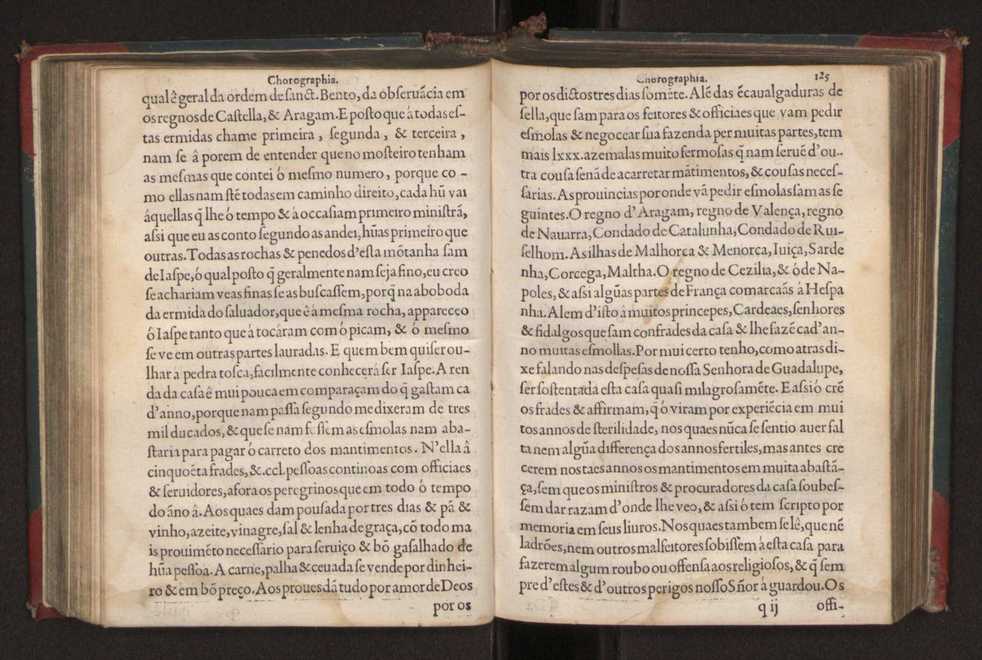 Chorographia.
qual ê geral da ordem de sanct. Bento, da obseruãcia em
os regnos de Castella, & Aragam. E posto que â todas es-
tas ermidas chame primeira , segunda , & terceira ,
nam se â porem de entender que no mosteiro tenham
as mesmas que contei ô mesmo numero, porque co -
mo ellas nam stê todas em caminho direito, cada hũ vai
âquellas q̃ lhe ô tempo & â occasiam primeiro ministrã,
assi que eu as conto segundo as andei, hũas primeiro que
outras. Todas as rochas & penedos d'esta mõtanha sam
de Iaspe, ô qual posto q̃ geralmente nam seja fino, eu creo
se achariam veas finas se as buscassem, porq̃ na aboboda
da ermida do saluador, que ê â mesma rocha, appareceo
ô Iaspe tanto que â tocâram com ô picam, & ô mesmo
se ve em outras partes lauradas. E quem bem quiser ou-
lhar a pedra tosca, facilmente conhecerâ ser Iaspe. A ren
da da casa ê mui pouca em comparaçam do q̃ gastam ca
d'anno, porque nam passa segundo me dixeram de tres
mil ducados, & que se nam fossem as esmolas nam aba-
staria para pagar ô carreto dos mantimentos. N'ella â
cinquoẽta frades, &.ccl. pessoas continoas com officiaes
& seruidores, afora os peregrinos que em todo ô tempo
do âno â. Aos quaes dam pousada por tres dias & pã &
vinho, azeite, vinagre, sal & lenha de graça, cõ todo ma
is prouimẽto necessario para seruiço & bõ gasalhado de
hũa pessoa. A carne, palha & ceuada se vende por dinhei-
ro & em bõ preço. Aos proues dã tudo por amor de Deos
por os
Chorographia. 125
por os dictos tres dias somẽte. Alẽ das ẽcaualgaduras de
sella, que sam para os feitores & officiaes que vam pedir
esmolas & negocear sua fazenda per muitas partes, tem
mais lxxx. azemalas muito fermosas q̃ nam seruẽ d'ou-
tra cousa senã de acarretar mãtimentos, & cousas neces-
sarias. As prouincias por onde vã pedir esmolas sam as se
guintes. O regno d'Aragam, regno de Valença, regno
de Nauarra, Condado de Catalunha, Condado de Rui-
selhom. As ilhas de Malhorca & Menorca, Iuiça, Sarde
nha, Corcega, Maltha. O regno de Cezilia, & ô de Na-
poles, & assi algũas partes de França comarcaãs â Hespa
nha. Alem d'isto â muitos princepes, Cardeaes, senhores
& fidalgos que sam confrades da casa & lhe fazẽ cad'an-
no muitas esmollas. Por mui certo tenho, como atras di-
xe falando nas despesas de nossa Senhora de Guadalupe,
ser sostentada esta casa quasi milagrosamẽte. E assi ô crẽ
os frades & affirmam, q̃ ô viram por experiẽcia em mui
tos annos de sterilidade, nos quaes nũca se sentio auer fal
ta nem algũa differença dos annos fertiles, mas antes cre
cerem nos taes annos os mantimentos em muita abastã-
ça, sem que os ministros & procuradores da casa soubes-
sem dar razam d'onde lhe veo, & assi ô tem scripto por
memoria em seus liuros. Nos quaes tambem se lê, que nẽ
ladrões, nem outros malfeitores sobissem â esta casa para
fazerem algum roubo ou offensa aos religiosos, & q̃ sem
pre d'estes & d'outros perigos nosso Sñor â guardou. Os
q ij offi-